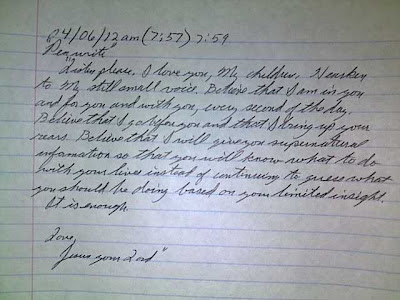 04/06/12 am (7:57) 7:59
Rewrite"
"Listen please. I love you, My children. Hearken
to My still small voice. Believe that I am in you
and for you and with you, every second of the day.
Believe that I go before you and that I bring up your
rears. Believe that I will give you supernatural
information so that you will know what to do
with your lives instead of continuing to guess what
you should be doing based on your limited insight.
It is enough.
Love,
Jesus your Lord"